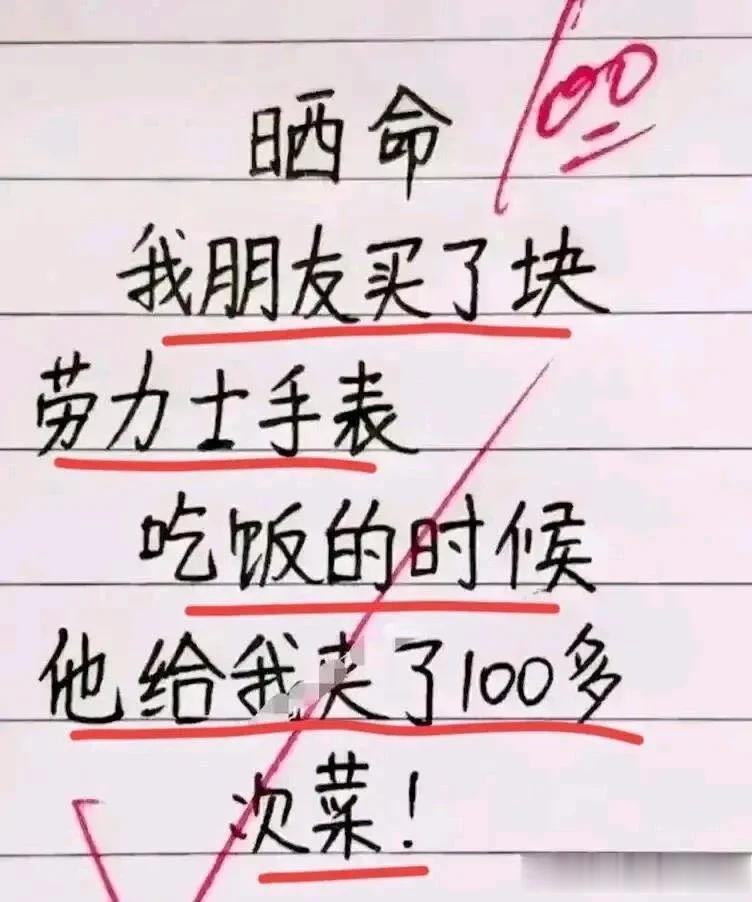 100
晒命
我朋友买了块
劳力士手表
吃饭的时候
他给我夹了100多
次菜！